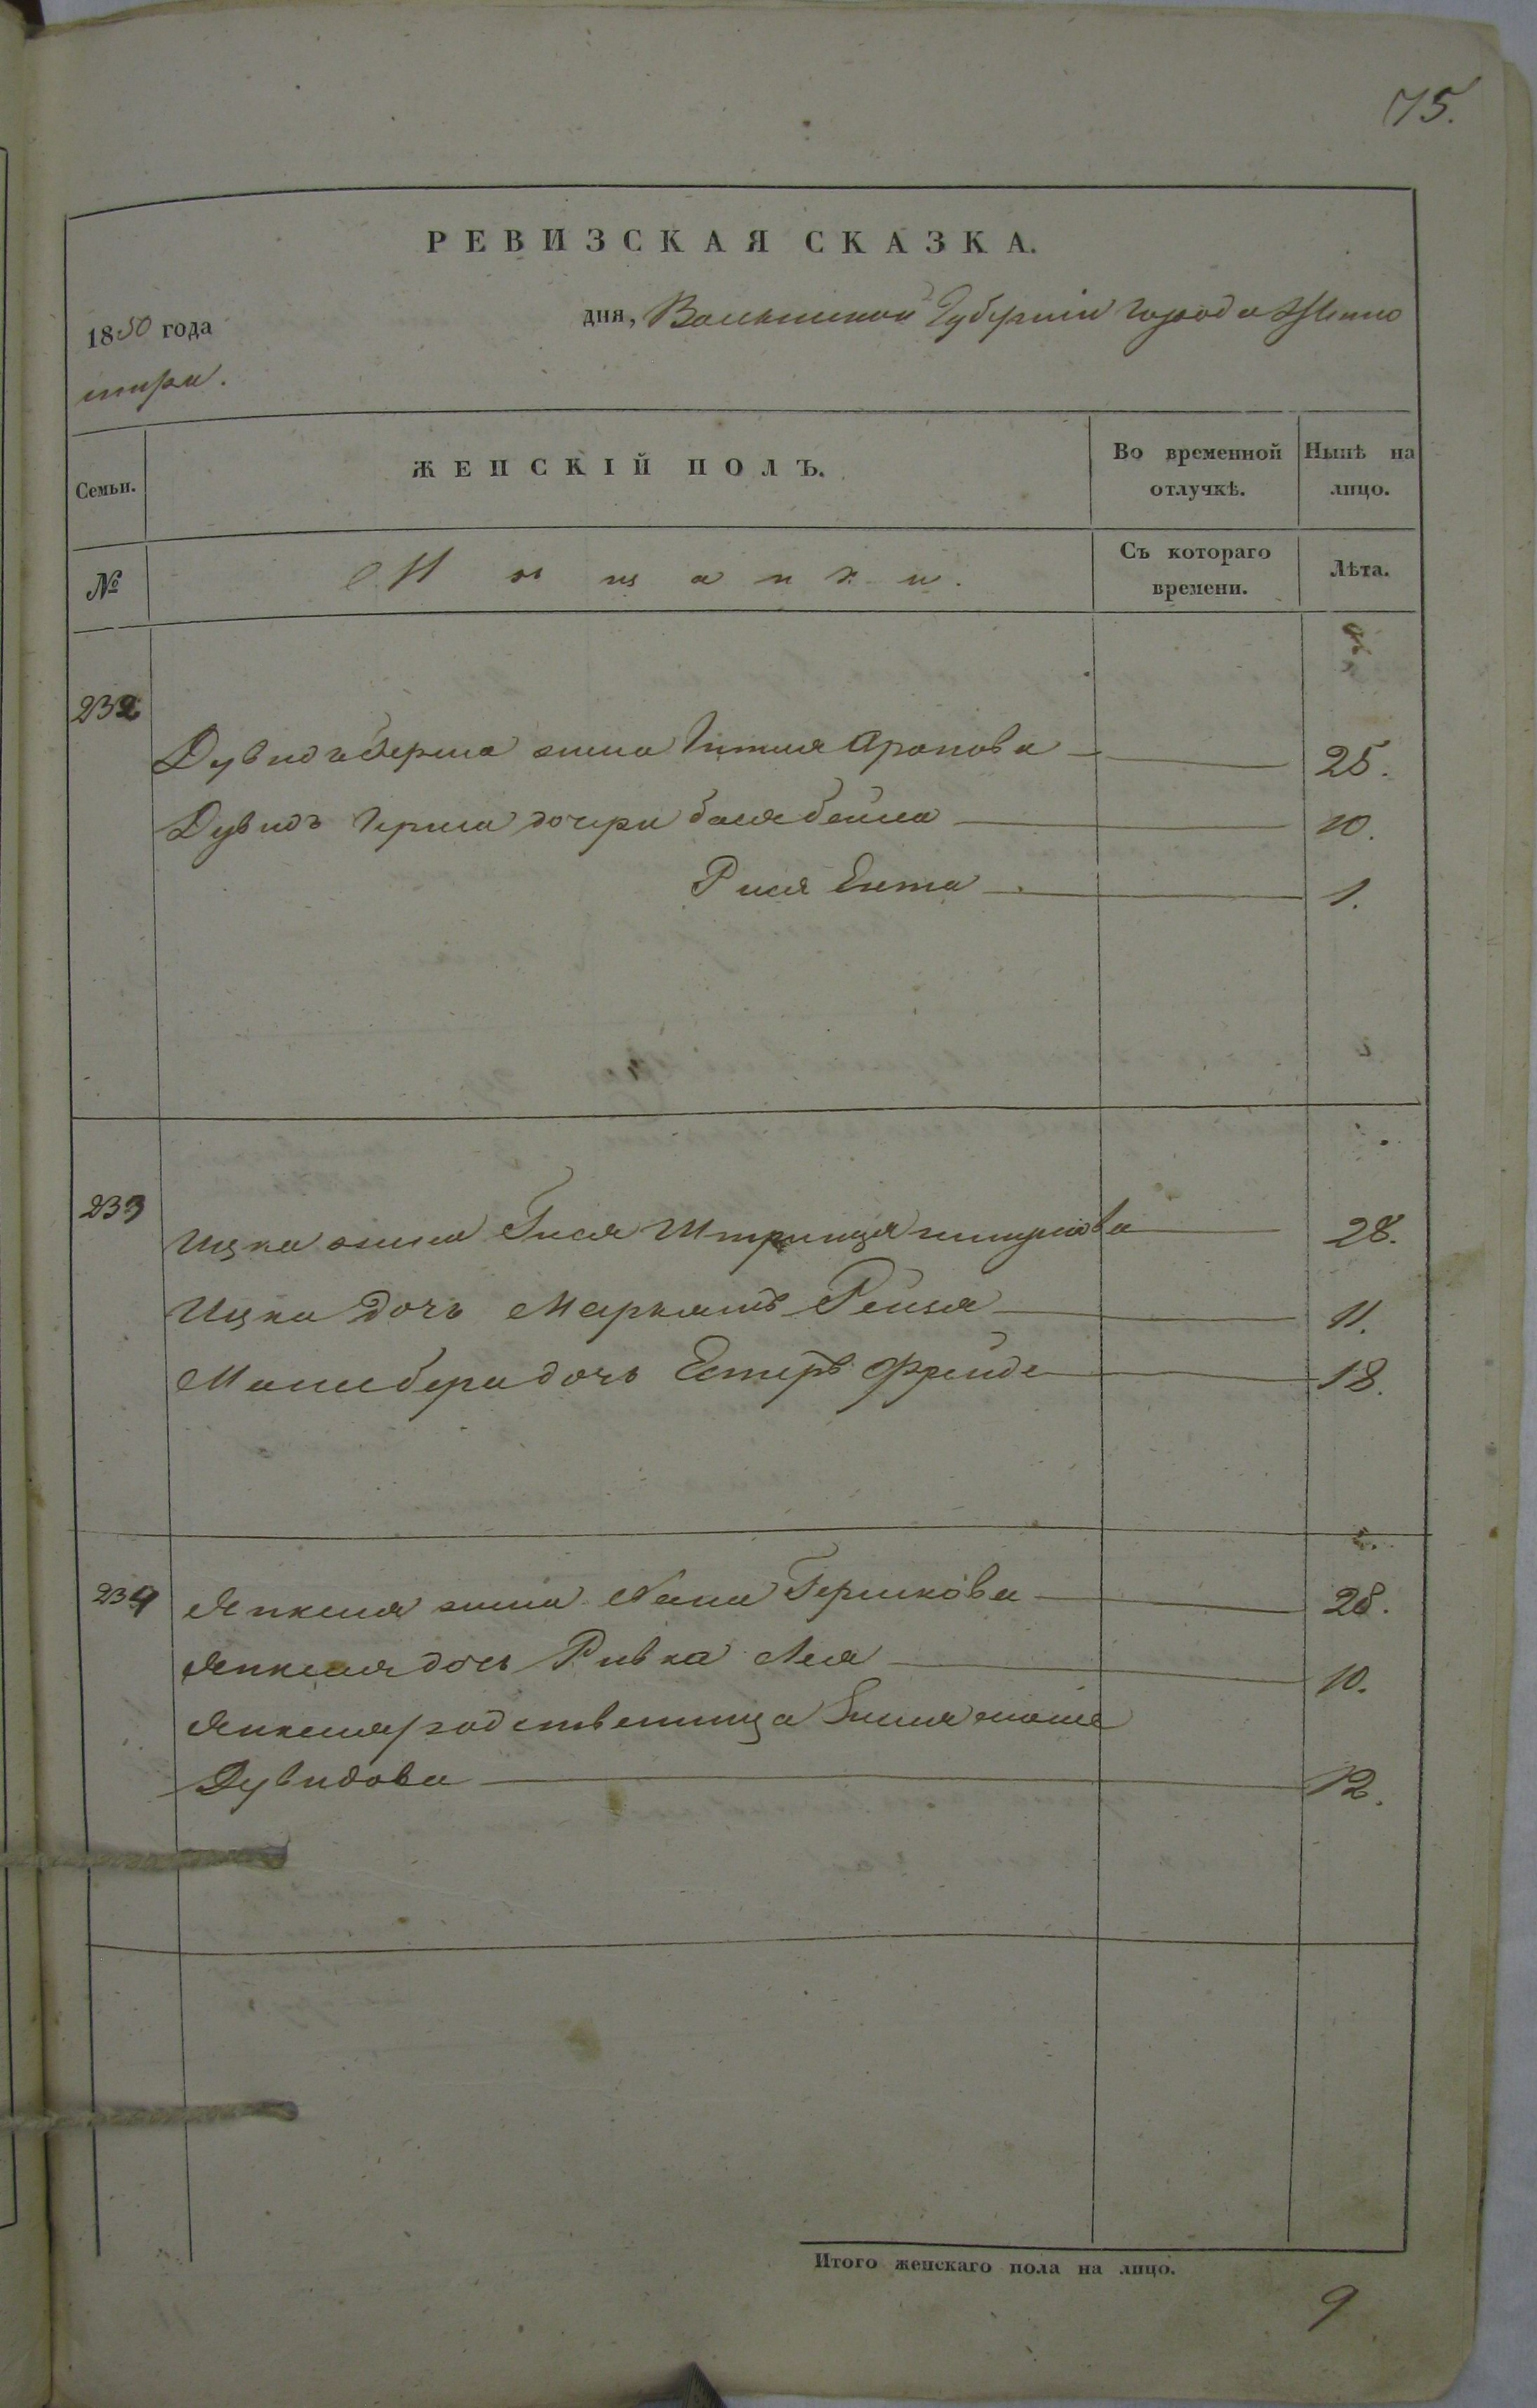 75.
РЕВИЗСКАЯ СКАЗКА.
1850 года дня, Волынской Губернии города Жито
мира.
Семьи. ЖЕНСКІЙ ПОЛЪ. Во временной отлучкѣ. Нынѣ на лицо.
№ Мѣщанки. Съ котораго времени. Лѣта.
232
Дувидъ Герша жена Гитля Аронова 25.
Дувидъ Герша дочери Бася Бейла 10.
Рися Ента 1.
233
Ицка жена Гися Штринця 28.
Ицка дочь Маркасъ Рейзя 11.
дочь Естеръ Фрейде 18.
234 Янкеля жена Хана Гершкова 28.
Янкеля дочь Ривка Лея 10.
Янкеля родственница
Дувидова 12.
Итого женскаго пола на лицо.
9